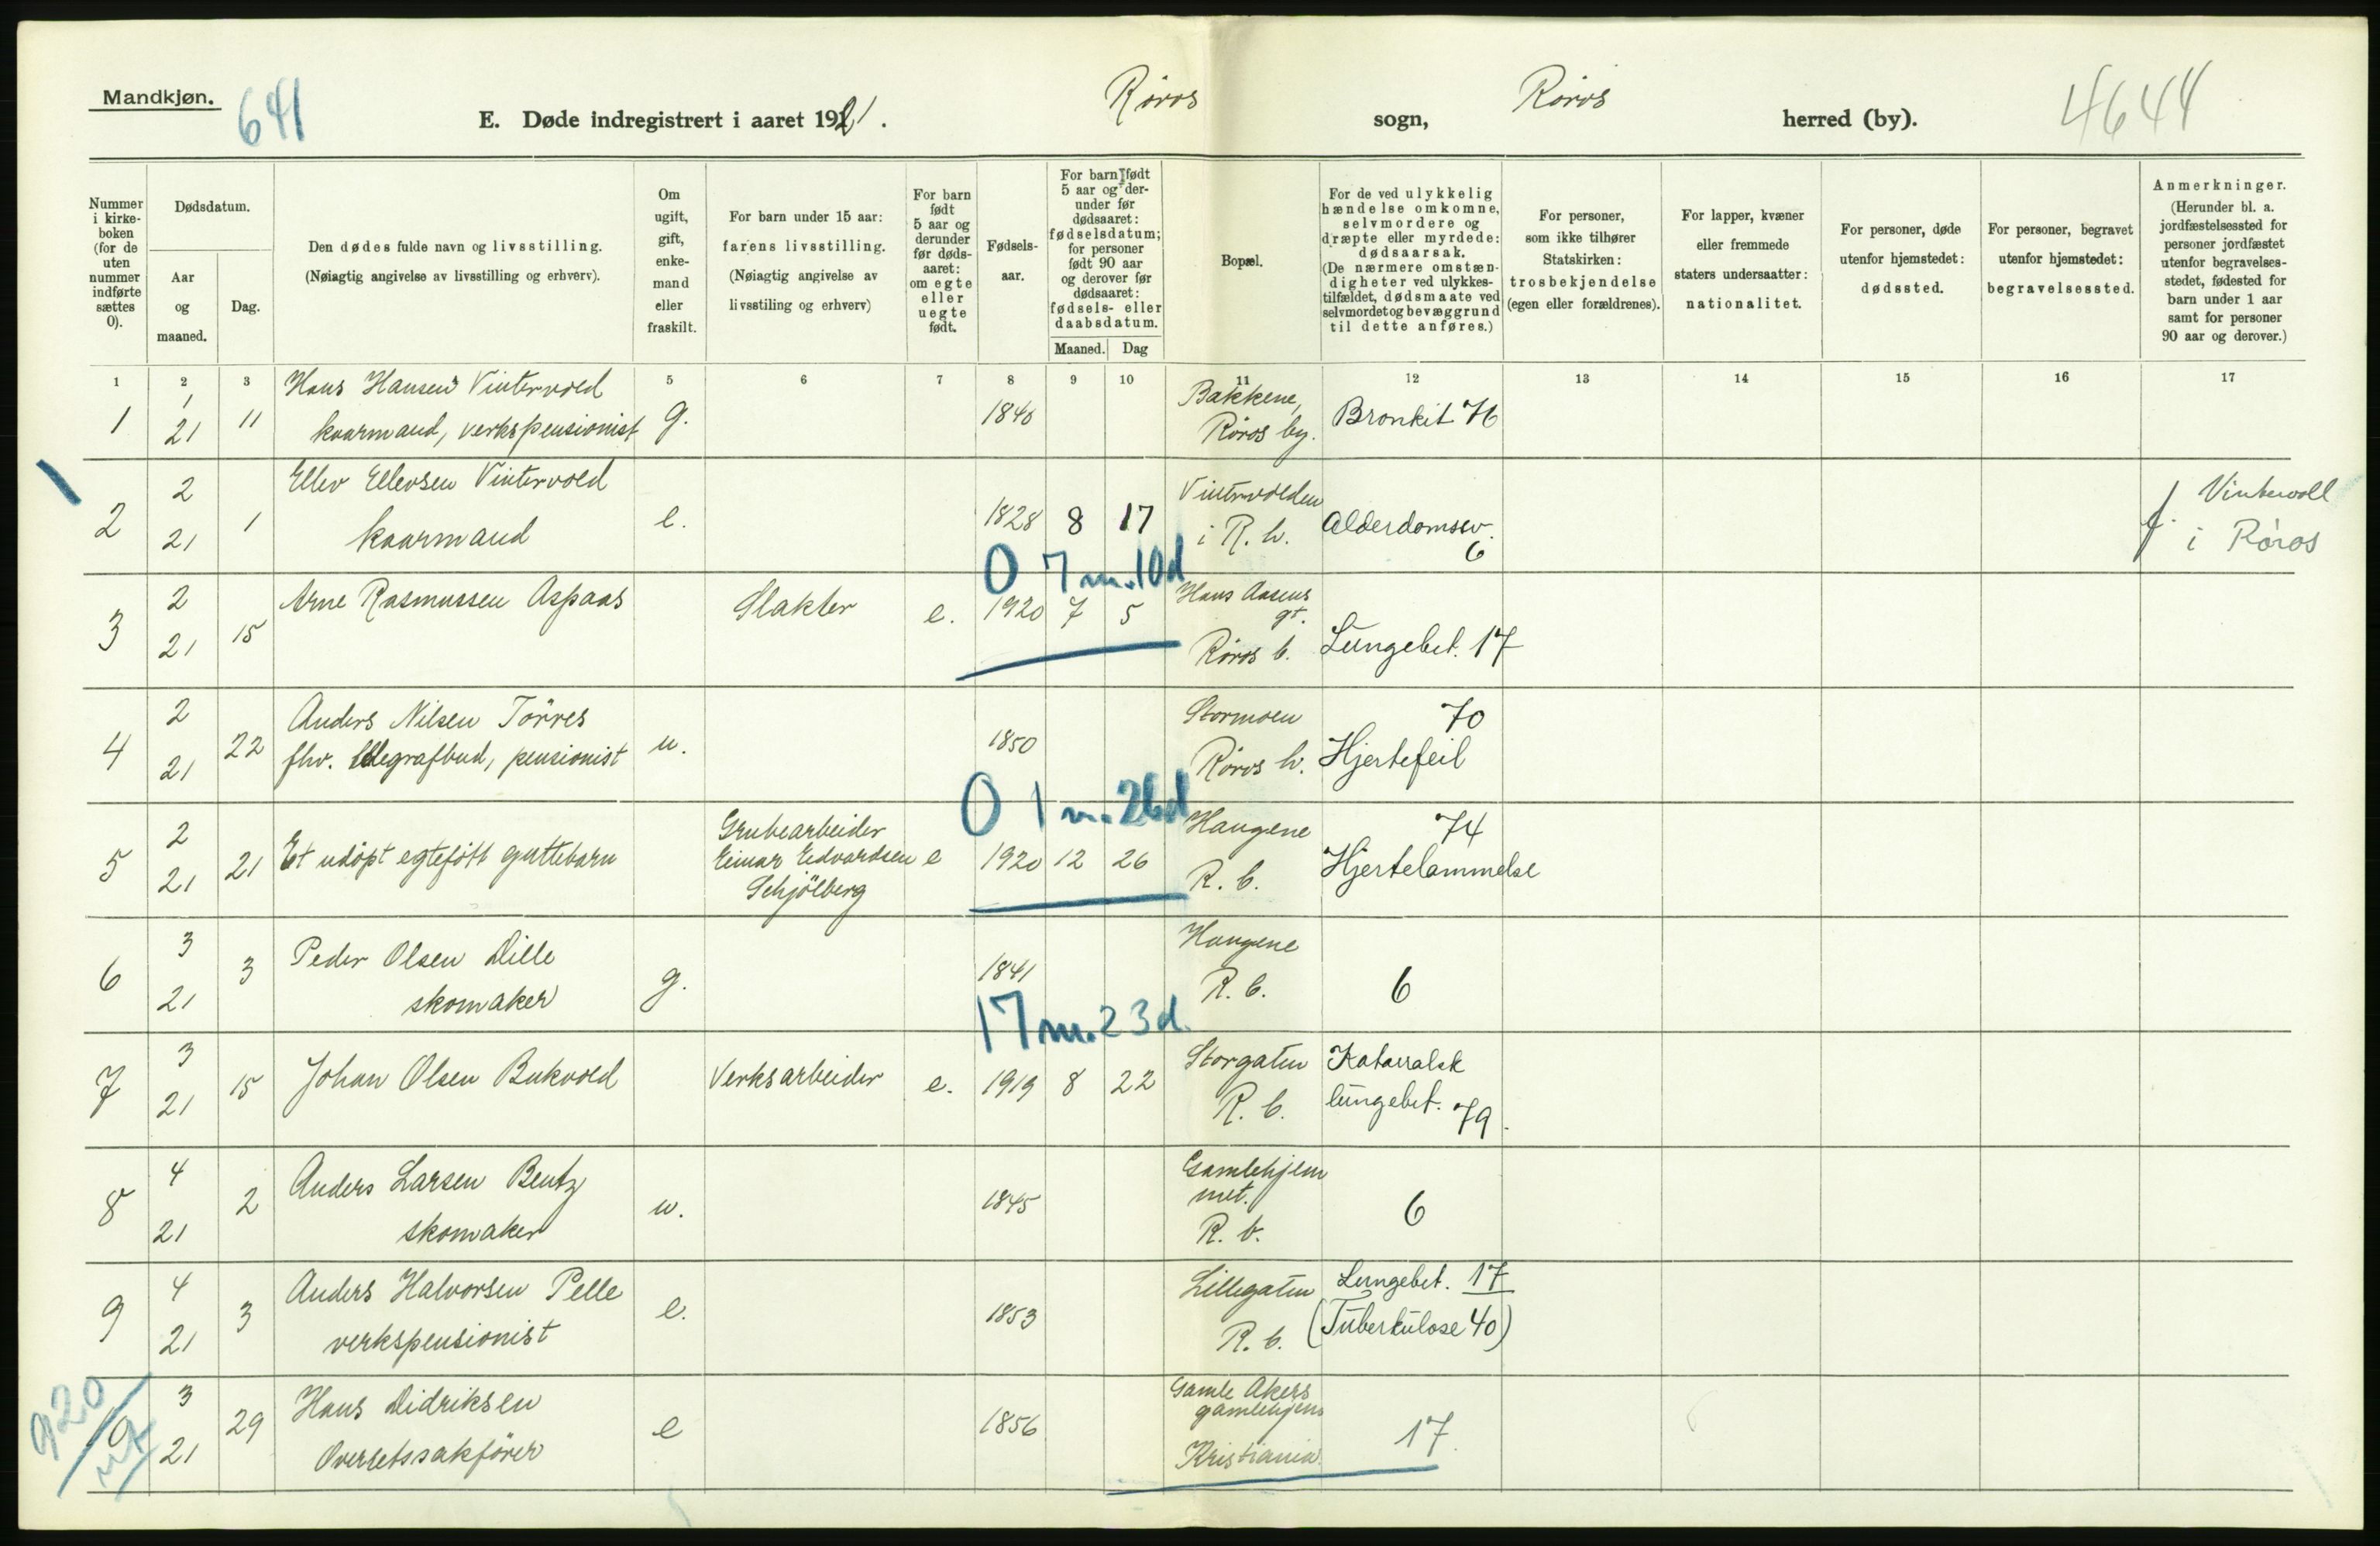 Mandkjøn.
641
E. Døde indregistrert i aaret 1921.
Røros sogn, Røros herred (by).
4644
Nummer i kirke-boken (for de uten nummer indførte sættes 0).
Dødsdatum.
Aar og maaned.
Dag.
Den dødes fulde navn og livsstilling.
(Nøiagtig angivelse av livsstilling og erhverv).
Om ugift, gift, enke-mand eller fraskilt.
For barn under 15 aar: farens livsstilling.
(Nøiagtig angivelse av livsstiling og erhverv)
For barn født 5 aar og derunder før døds-aaret: om egte eller uegte født.
Fødsels-aar.
For barn født 5 aar og der-under før dødsaaret: fødselsdatum; for personer født 90 aar og derover før dødsaaret: fødsels- eller daabsdatum.
Maaned. Dag
Bopæl.
For de ved ulykkelig hændelse omkomne, selvmordere og dræpte eller myrdede: dødsaarsak.
(De nærmere omstæn-digheter ved ulykkes-tilfældet, dødsmaate ved selvmordet og bevæggrund til dette anføres.)
For personer, som ikke tilhører Statskirken: trosbekjendelse (egen eller forældrenes).
For lapper, kvæner eller fremmede staters undersaatter: nationalitet.
For personer, døde utenfor hjemstedet: dødssted.
For personer, begravet utenfor hjemstedet: begravelsessted.
Anmerkninger.
(Herunder bl. a. jordfæstelsessted for personer jordfæstet utenfor begravelses-stedet, fødested for barn under 1 aar samt for personer 90 aar og derover.)
1 2 3 5 6 7 8 9 10 11 12 13 14 15 16 17
1 1 21 11 Hans Hansen Vintervold
kaarmand, verkspensionist g. 1840 Bakkene, Røros by. Bronkit 76
2 2 21 1 Ellev Ellevsen Vintervold
kaarmand e. 1828 8 17 Vintervolden i R. h. Alderdomssv. 6
f. Vintervoll i Røros
0 7 m. 10 d
3 2 21 15 Arne Rasmussen Aspaas Slakter e. 1920 7 5 Hans Aasens gt. Røros b. Lungebet. 17
4 2 21 22 Anders Nilsen Törres
fhv. telegrafbud, pensionist u. 1850 Stormoen Røros h. 70 Hjertefeil
0 1 m. 26 d
5 2 21 21 Et udöpt egtefött guttebarn Grubearbeider Einar Edvardsen Schjölberg e 1920 12 26 Haugene R. b. 74 Hjertelammelse
6 3 21 3 Peder Olsen Dille
skomaker g. 1841 Haugene R. b. 6
1 7 m. 23 d.
7 3 21 15 Johan Olsen Bukvold Verksarbeider e. 1919 8 22 Storgaten R. b. Katarralsk lungebet. 79.
8 4 21 2 Anders Larsen Bentz
skomaker u. 1845 Gamlehjemmet. R. b. 6
9 4 21 3 Anders Halvorsen Pelle
verkspensionist e. 1853 Lillegaten R. b. Lungebet. 17 (Tuberkulose 40)
920
0 3 21 29 Hans Didriksen
Overretssakförer e 1856 Gamle Akers gamlehjem Kristiania. 17.